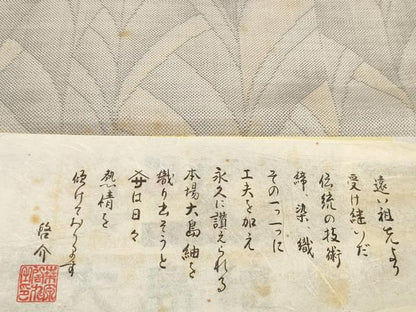 遠い祖先より
受け継いだ
伝統の技術
締染織
その一つ一つに
工夫を加え
永久に讃えられる
本場大島紬を
織り出そうと
は日々
熱情を
傾けております
啓介